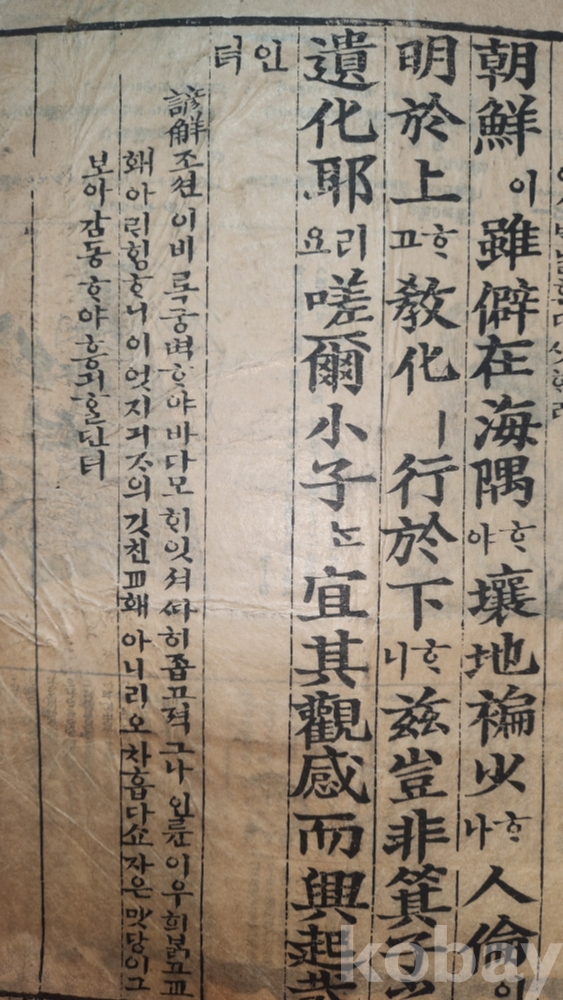 朝鮮이雖僻在海隅ᄒᆞ야壤地褊小ᄒᆞ나人倫이
明於上ᄒᆞ고敎化ㅣ行於下ᄒᆞ니玆豈非箕子之
遺化耶리요嗟爾小子ᄂᆞᆫ宜其觀感而興起哉
인터
諺解조션이비록궁벽ᄒᆞ야바다모ᄒᆡ잇셔ᄯᅡ히좁고젹그나인륜이우희ᄇᆞᆰ고교
홰아ᄅᆡᄒᆡᆼᄒᆞ니이엇지긔ᄌᆞ의깃친교홰아니리오차흡다쇼ᄌᆞ은맛당이그
보아감동ᄒᆞ야흥긔ᄒᆞᆯ단터
kobay